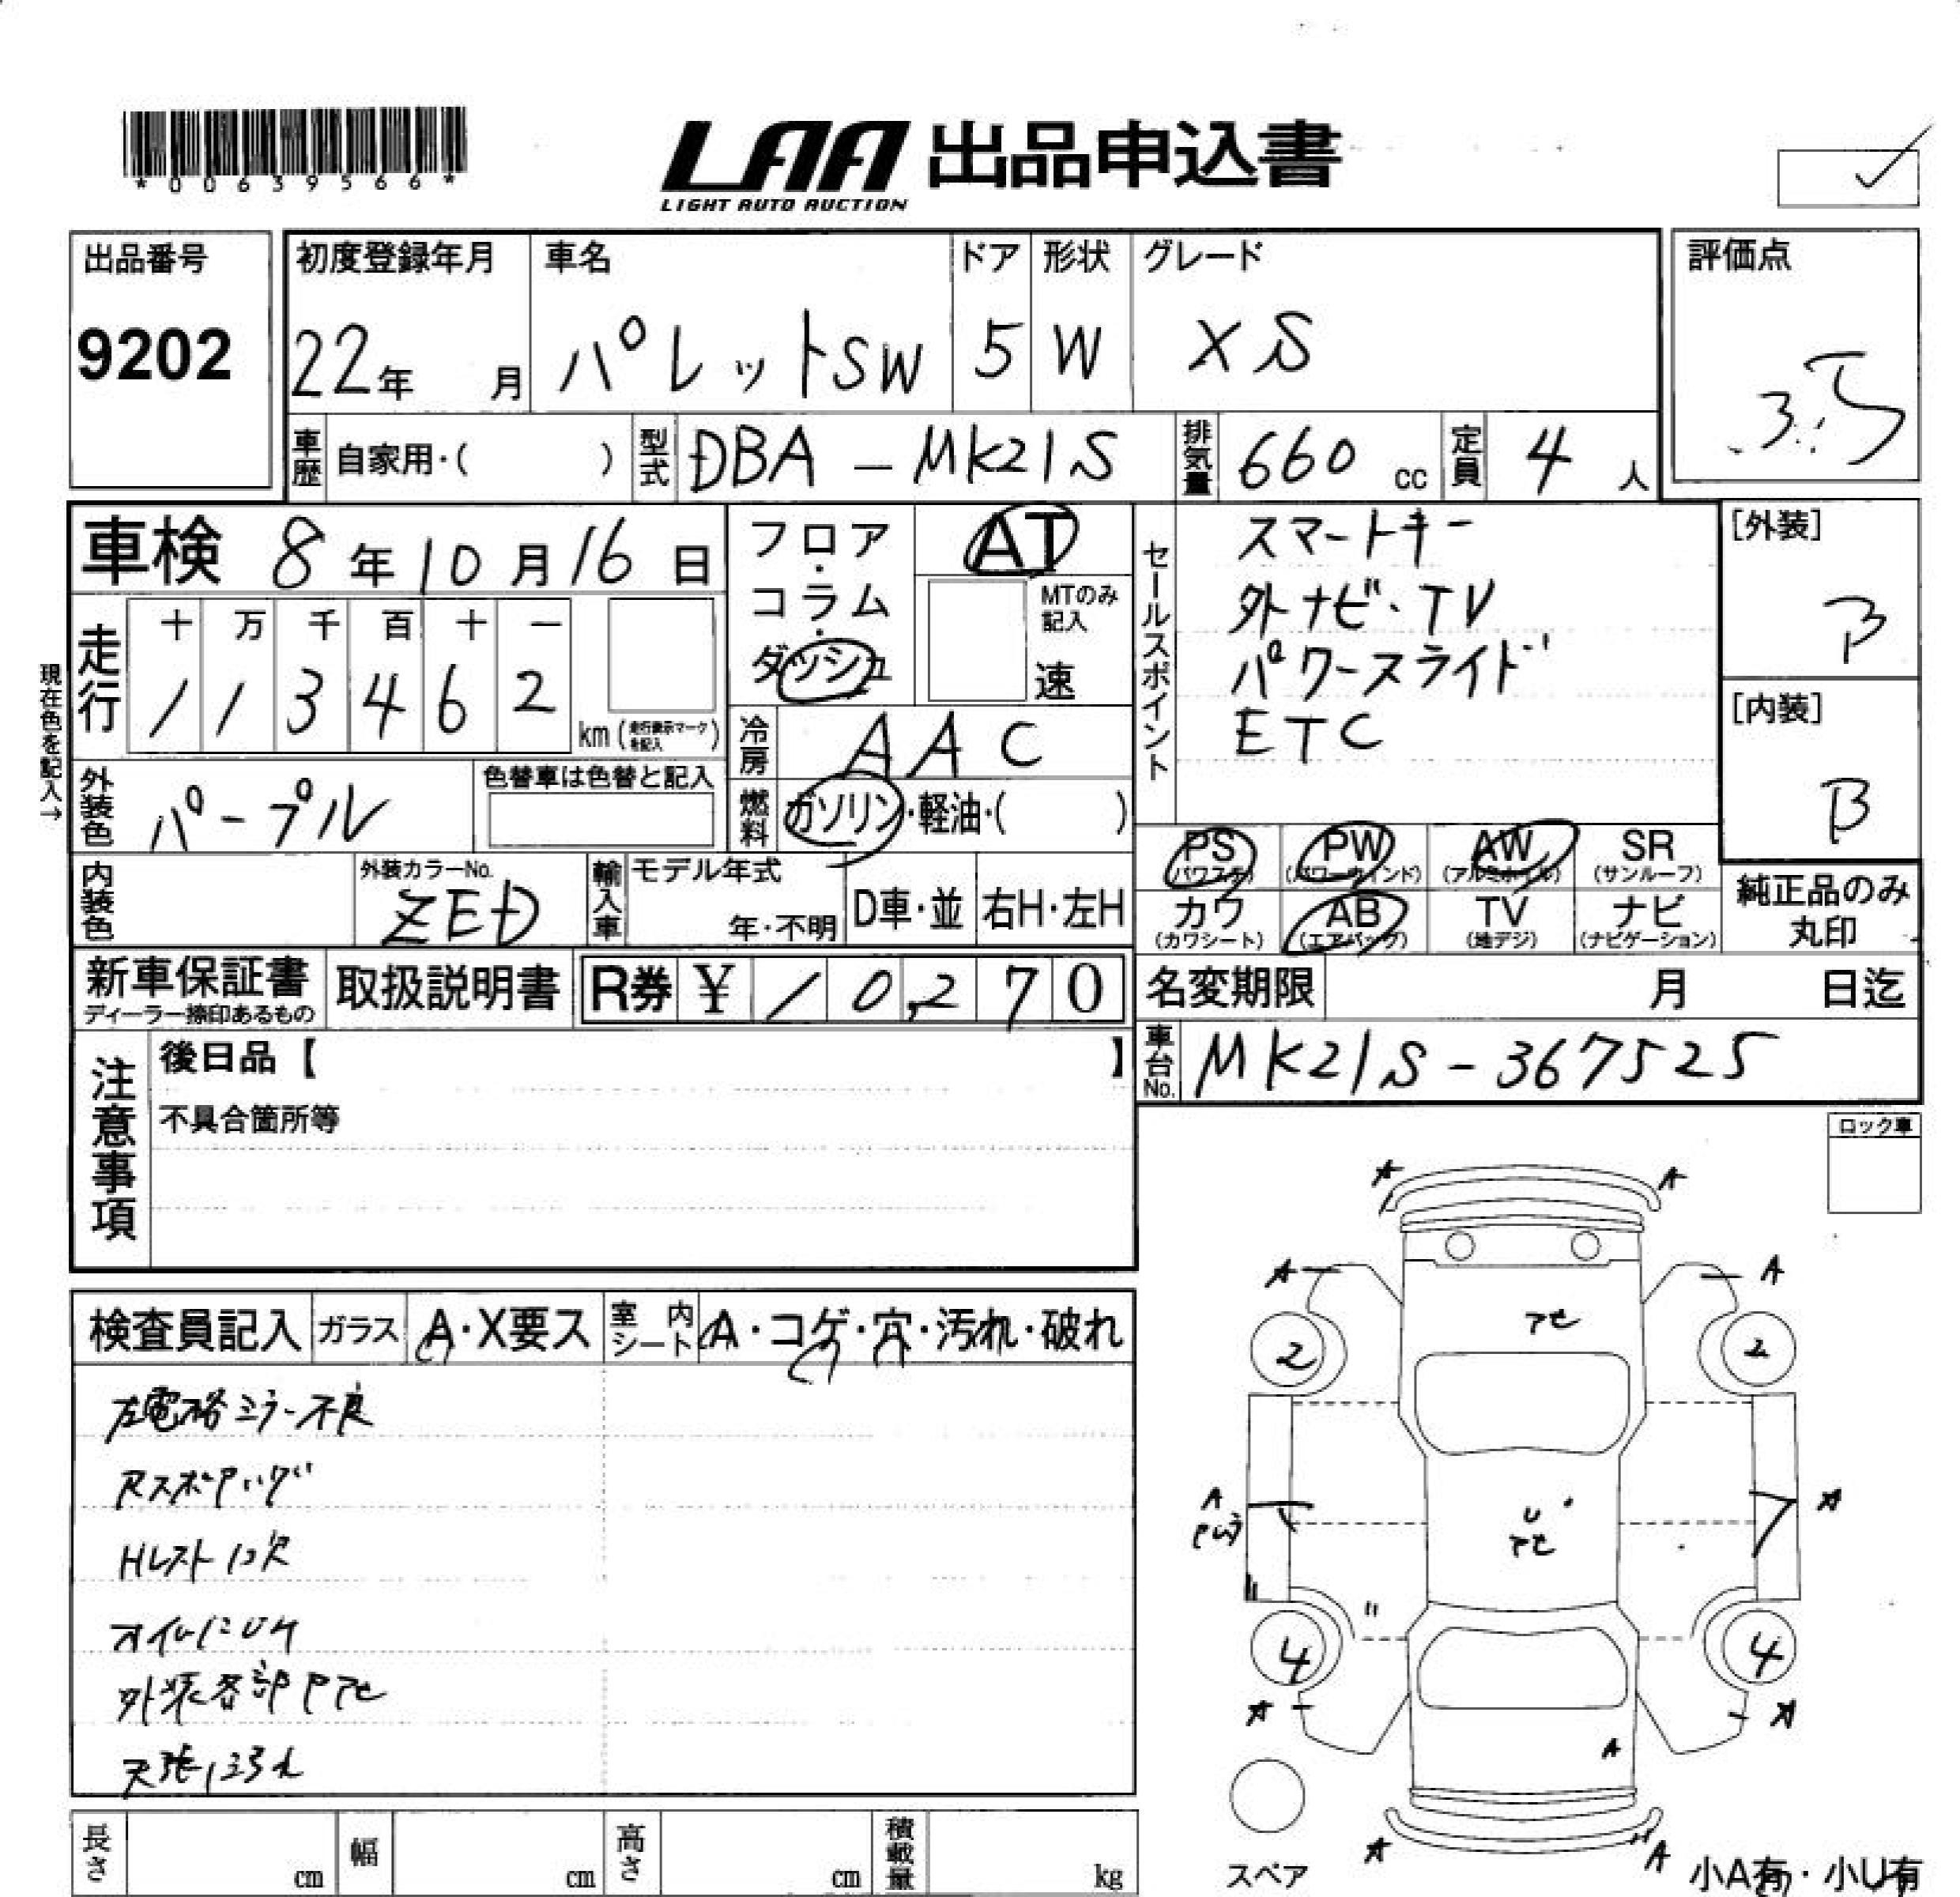 *00639566*
LAA 出品申込書
LIGHT AUTO AUCTION
出品番号
9202
初度登録年月
22年 月
車名
パレットSW
ドア
5
形状
W
グレード
XS
評価点
3.5
車歴 自家用・( )
型式 DBA-MK21S
排気量 660 cc
定員 4 人
車検 8年10月16日
フロア・コラム・ダッシュ
AT
MTのみ記入
速
セールスポイント
スマートキー
外ナビ・TV
パワースライド
ETC
[外装]
B
[内装]
B
現在色を記入→
走行
十 万 千 百 十 一
1 1 3 4 6 2
km (走行表示マークを記入)
冷房 AAC
外装色 パープル
色替車は色替と記入
燃料 ガソリン・軽油・( )
内装色
外装カラーNo.
ZED
輸入車
モデル年式
年・不明
D車・並
右H・左H
PS (パワステ)
PW (パワーウインド)
AW (アルミホイル)
SR (サンルーフ)
カワ (カワシート)
AB (エアバッグ)
TV (地デジ)
ナビ (ナビゲーション)
純正品のみ丸印
新車保証書
ディーラー捺印あるもの
取扱説明書
R券 ¥ 10,270
名変期限 月 日迄
車台No. MK21S-367525
注意事項
後日品【 】
不具合箇所等
ロック車
検査員記入
ガラス A・X要ス
室内シート A・コゲ・穴・汚れ・破れ
左電格ミラー不良
Rスポアッグ
Hレスト1コ欠
オイルにじみ
外装各部Pアセ
天張にごれ
A A
A A
アセ
2 2
A
A
U
アセ
4 4
A A
A
A A
スペア
小A有・小U有
長さ cm
幅 cm
高さ cm
積載量 kg